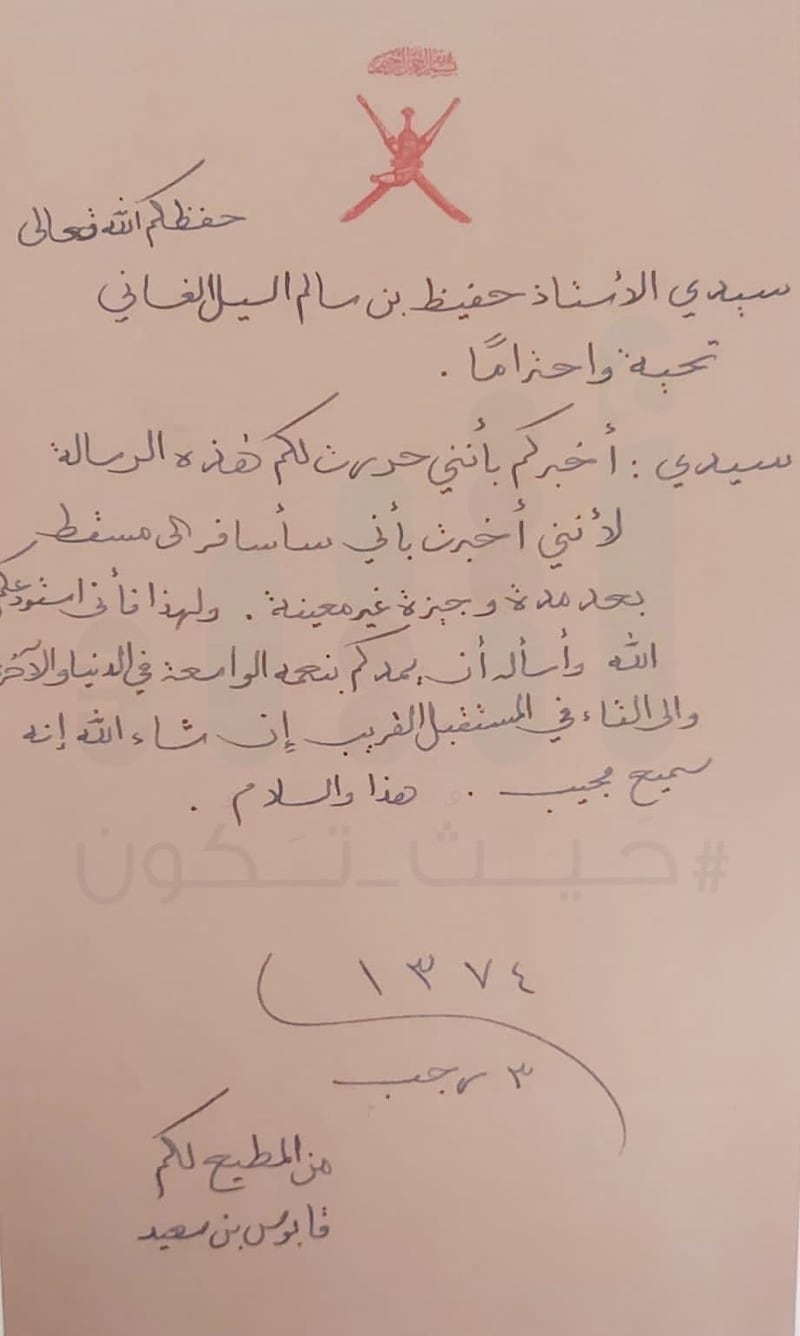 بسم الله الرحمن الرحيم
حفظكم الله تعالى
سيدي الأستاذ حفيظ بن سالم السيل الغساني
تحية واحترامًا .
سيدي : أخبركم بأنني حررت لكم هذه الرسالة
لأنني أخبرت بأني سأسافر الى مسقط
بعد مدة وجيزة غير معينة . ولهذا فأني استودعكم
الله وأسأله أن يمدكم بنعمه الواسعة في الدنيا والآخر
والى القاء في المستقبل القريب إن شاء الله إنه
سميع مجيب . هذا والسلام .
#حيث_تكون
١٣٧٤
٣ رجب
من المطيع لكم
قابوس بن سعيد